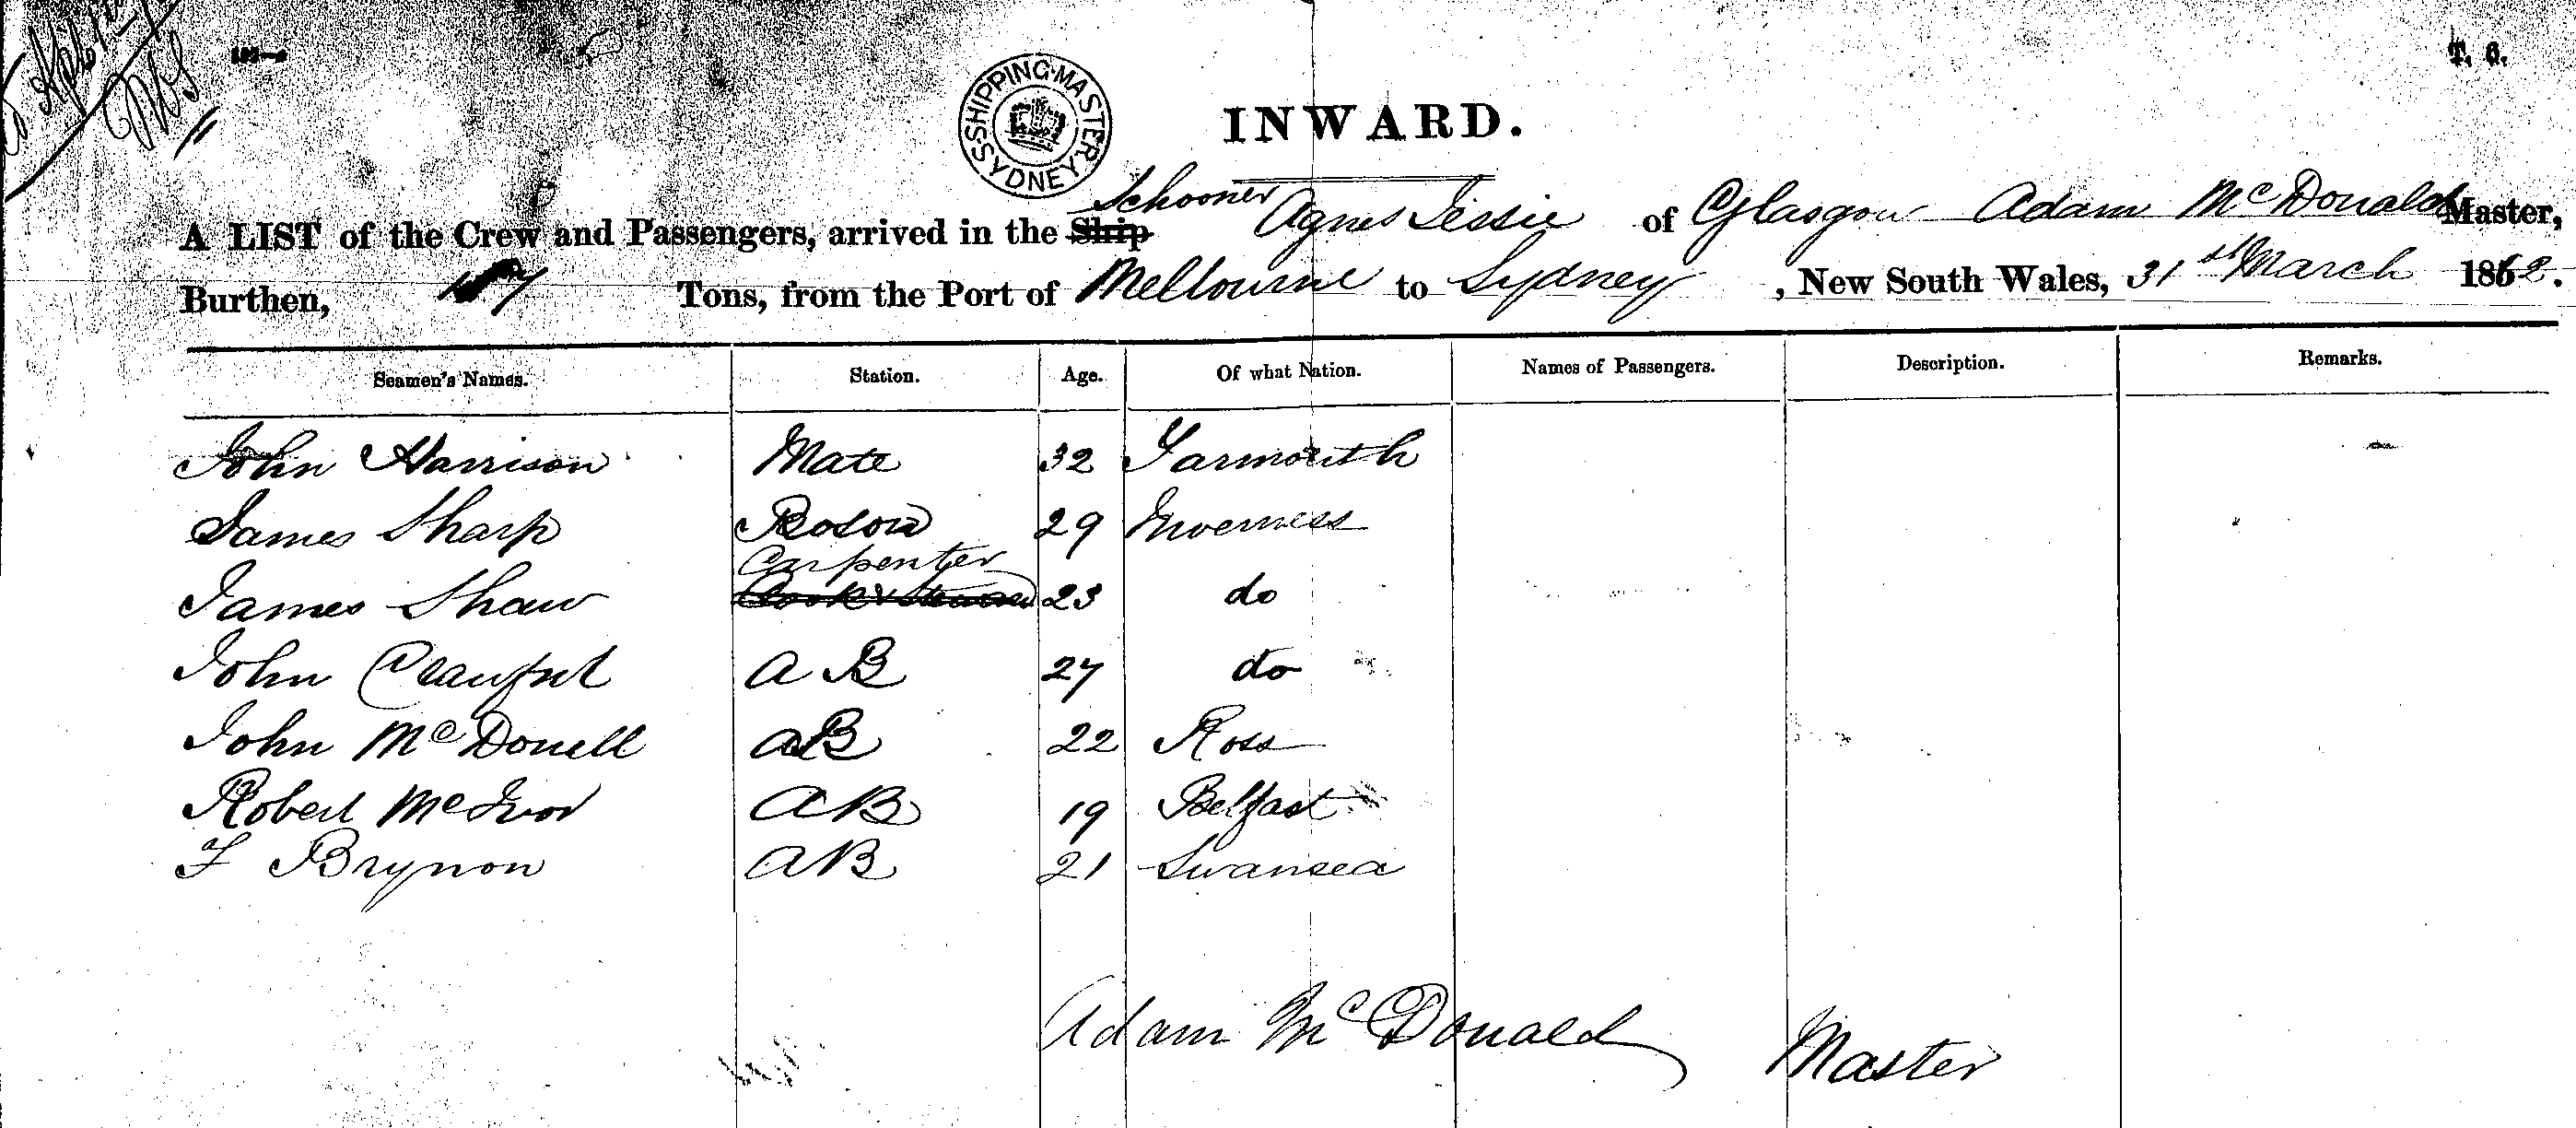 T. 6.
SHIPPING MASTER SYDNEY
INWARD.
Schooner
A LIST of the Crew and Passengers, arrived in the Ship Agnes Jessie of Glasgow Adam McDonald Master,
Burthen, Tons, from the Port of Melbourne to Sydney, New South Wales, 31st March 1862.
Seamen's Names. Station. Age. Of what Nation. Names of Passengers. Description. Remarks.
John Harrison Mate 32 Yarmouth
James Sharp Bosow 29 Inverness
Carpenter
James Shaw Cook & Steward 23 do
John A B 27 do
John McDonell AB 22 Ross
Robert McIvor AB 19 Belfast
F Brynon AB 21 Swansea
Adam McDonald Master